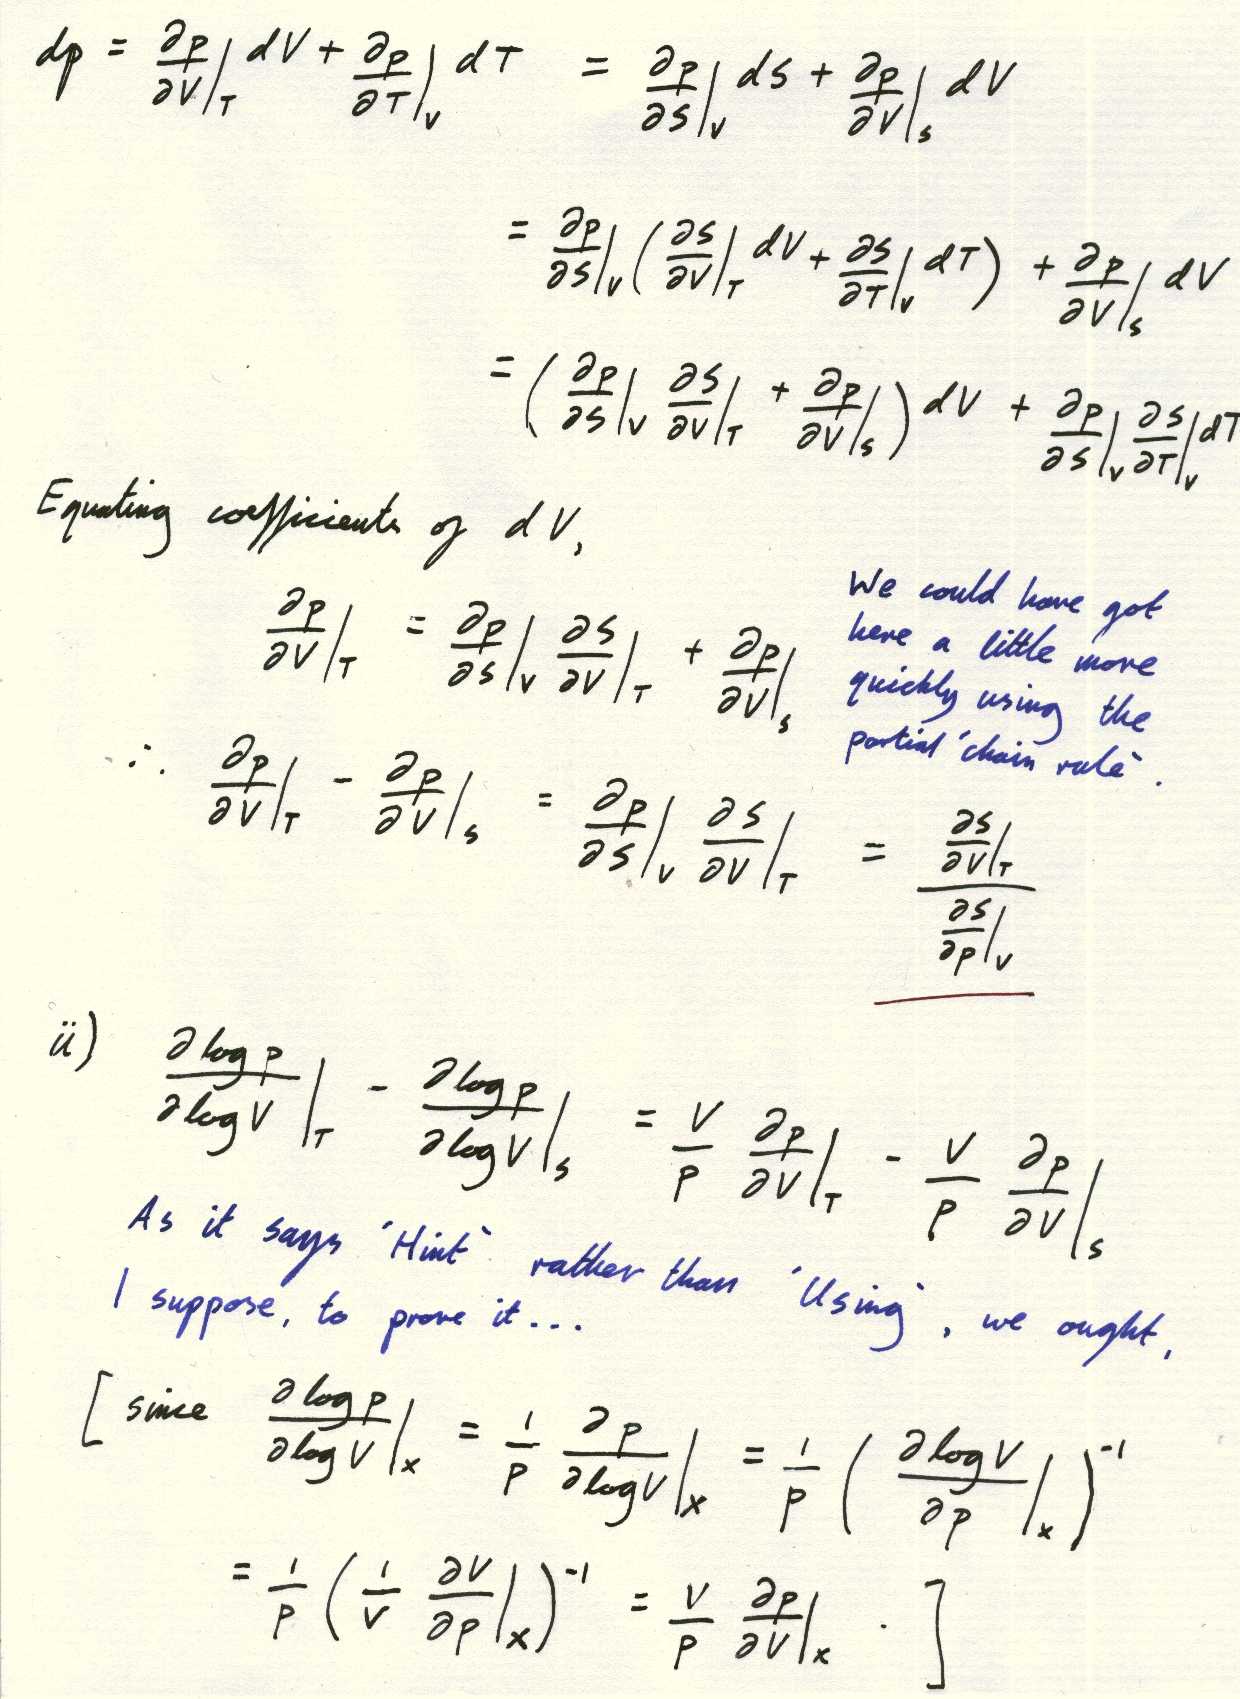 dp = ∂p/∂V|_T dV + ∂p/∂T|_V dT = ∂p/∂S|_V dS + ∂p/∂V|_S dV
= ∂p/∂S|_V (∂S/∂V|_T dV + ∂S/∂T|_V dT) + ∂p/∂V|_S dV
= (∂p/∂S|_V ∂S/∂V|_T + ∂p/∂V|_S) dV + ∂p/∂S|_V ∂S/∂T|_V dT
Equating coefficients of dV,
∂p/∂V|_T = ∂p/∂S|_V ∂S/∂V|_T + ∂p/∂V|_S
We could have got
here a little more
quickly using the
partial 'chain rule'.
∴ ∂p/∂V|_T - ∂p/∂V|_S = ∂p/∂S|_V ∂S/∂V|_T = (∂S/∂V|_T)/(∂S/∂p|_V)
ii) ∂log p/∂log V|_T - ∂log p/∂log V|_S = V/p ∂p/∂V|_T - V/p ∂p/∂V|_S
As it says 'Hint' rather than 'Using', we ought,
I suppose, to prove it...
[since ∂log p/∂log V|_x = 1/p ∂p/∂log V|_x = 1/p (∂log V/∂p|_x)^-1
= 1/p (1/V ∂V/∂p|_x)^-1 = V/p ∂p/∂V|_x .]